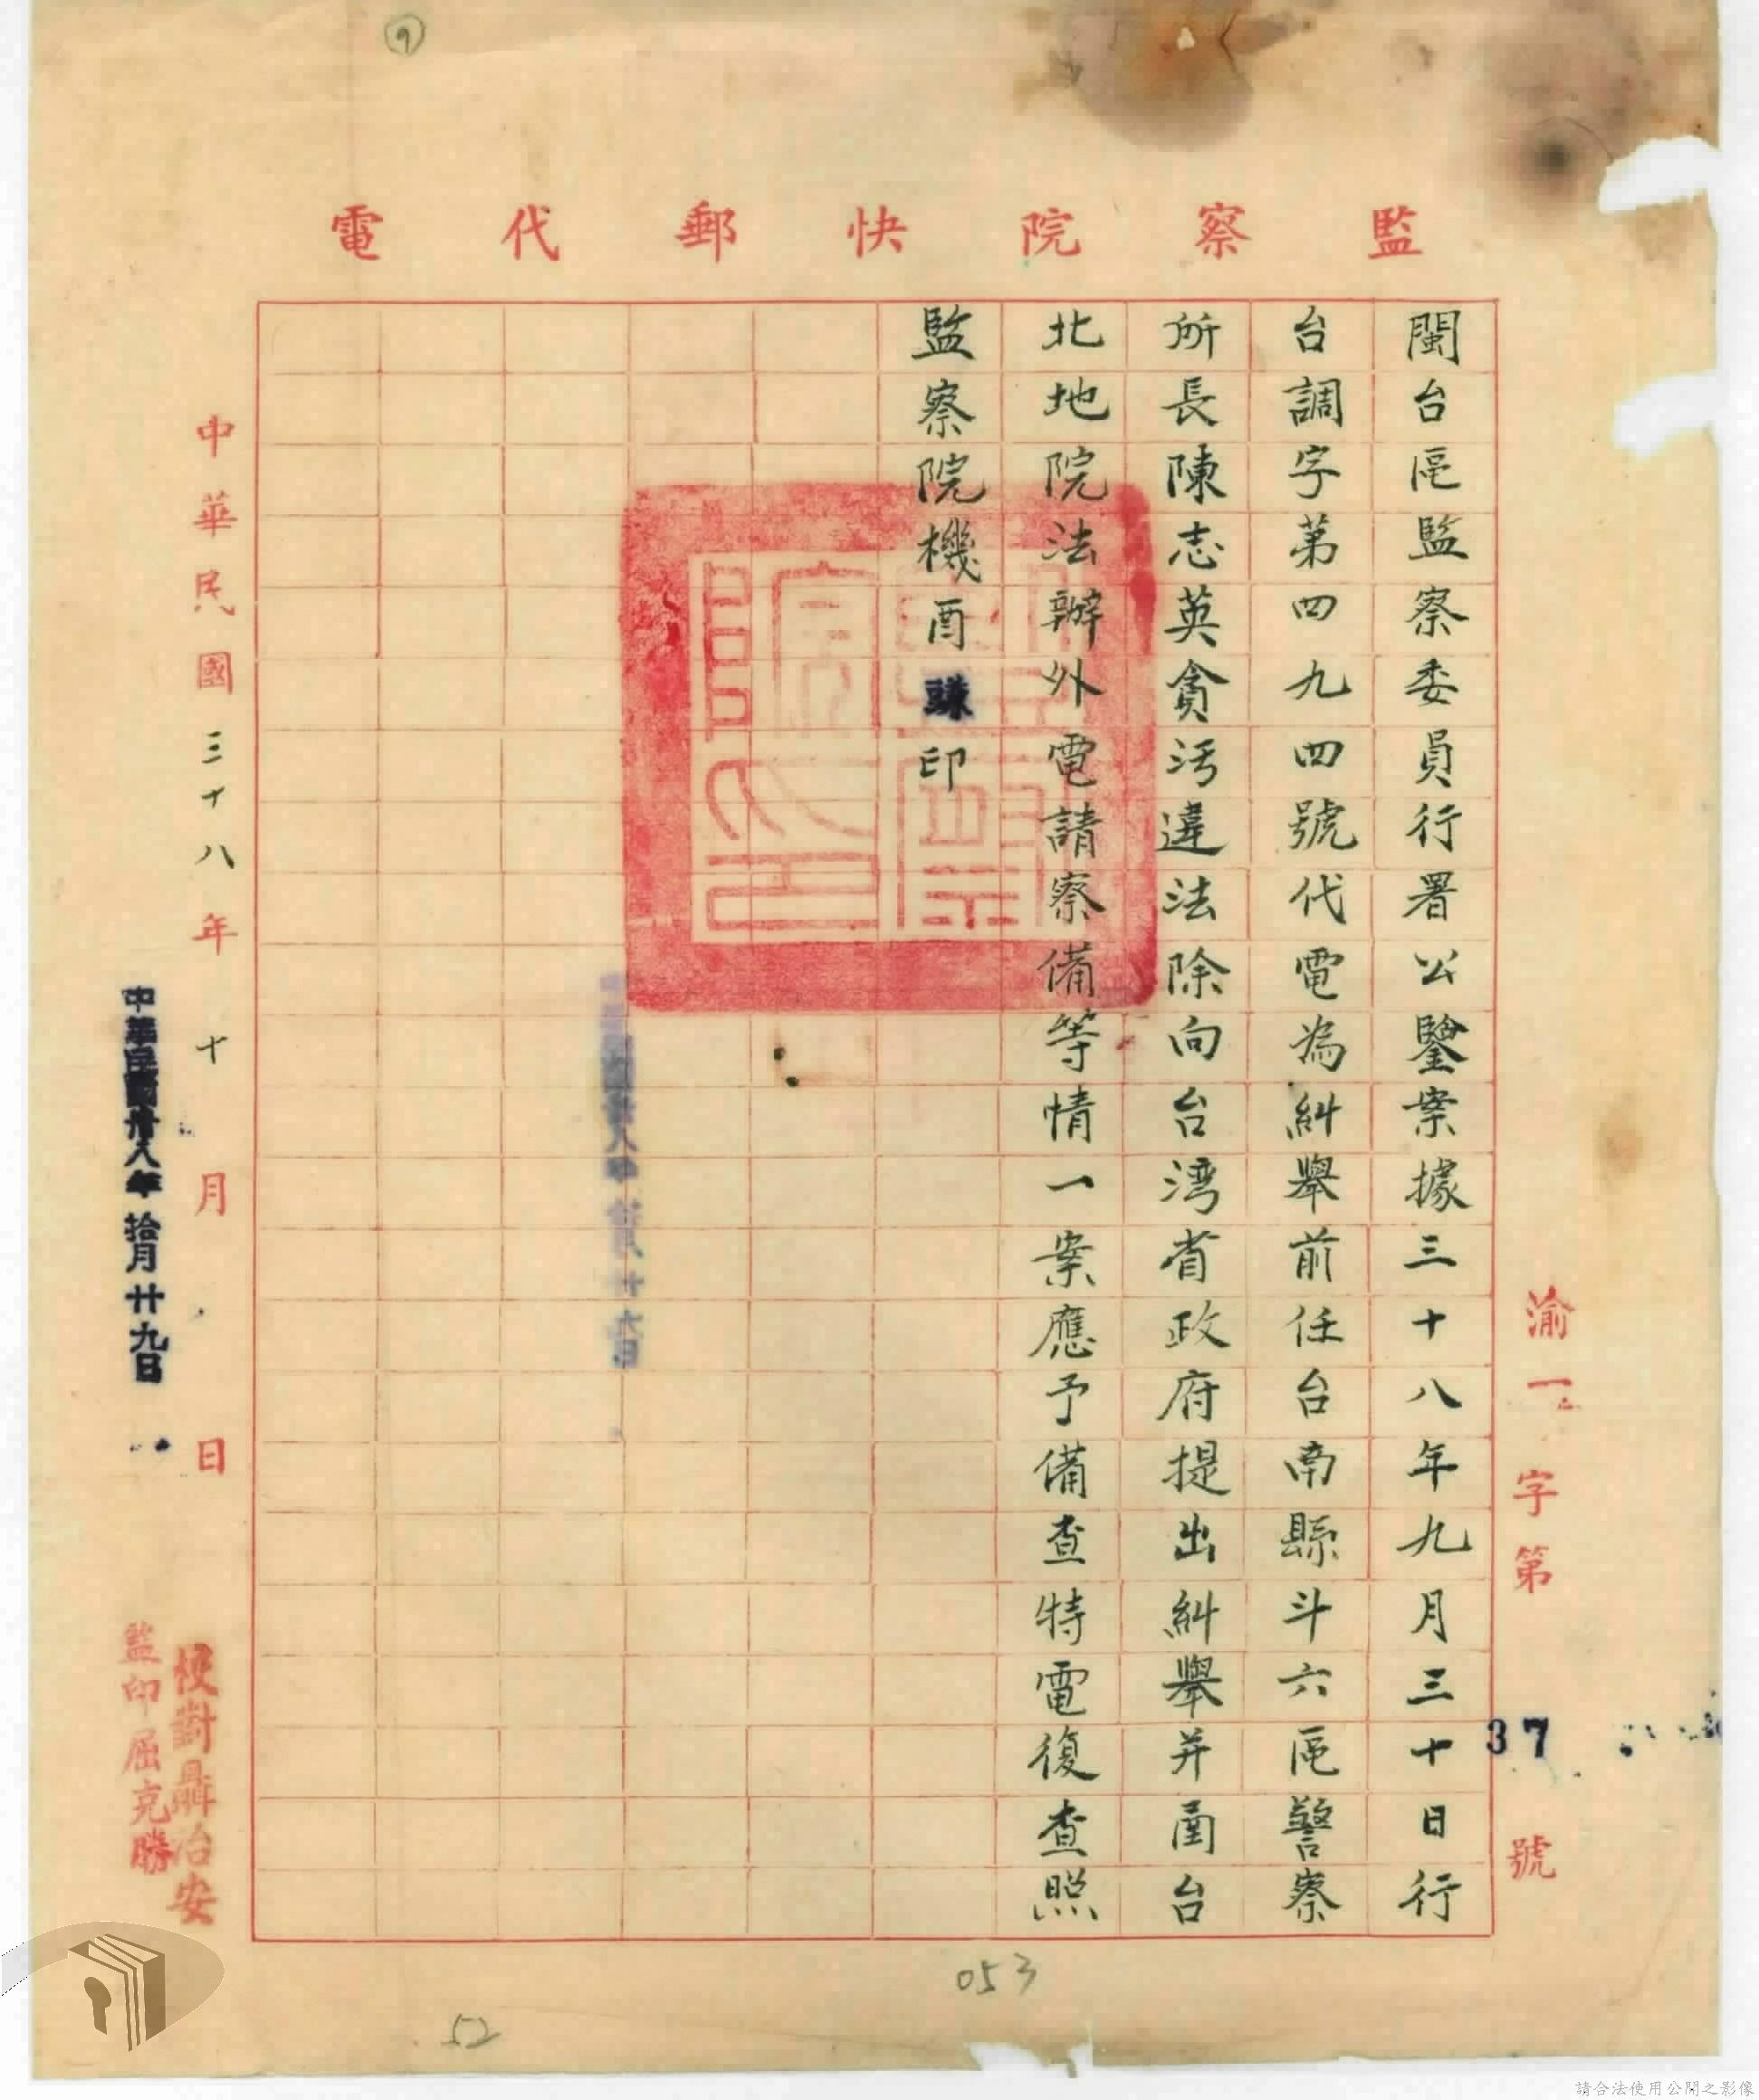 監察院快郵代電
渝一字第
37
號
閩台區監察委員行署公鑒案據三十八年九月三十日行
台調字第四九四號代電為糾舉前任台南縣斗六區警察
所長陳志英貪污違法除向台灣省政府提出糾舉并函台
北地院法辦外電請察備等情一案應予備查特電復查照
監察院機酉 印
中華民國三十八年十月 日
中華民國卅八年拾月廿九日
校對聶治安
監印屈克勝
9
053
52
請合法使用公開之影像